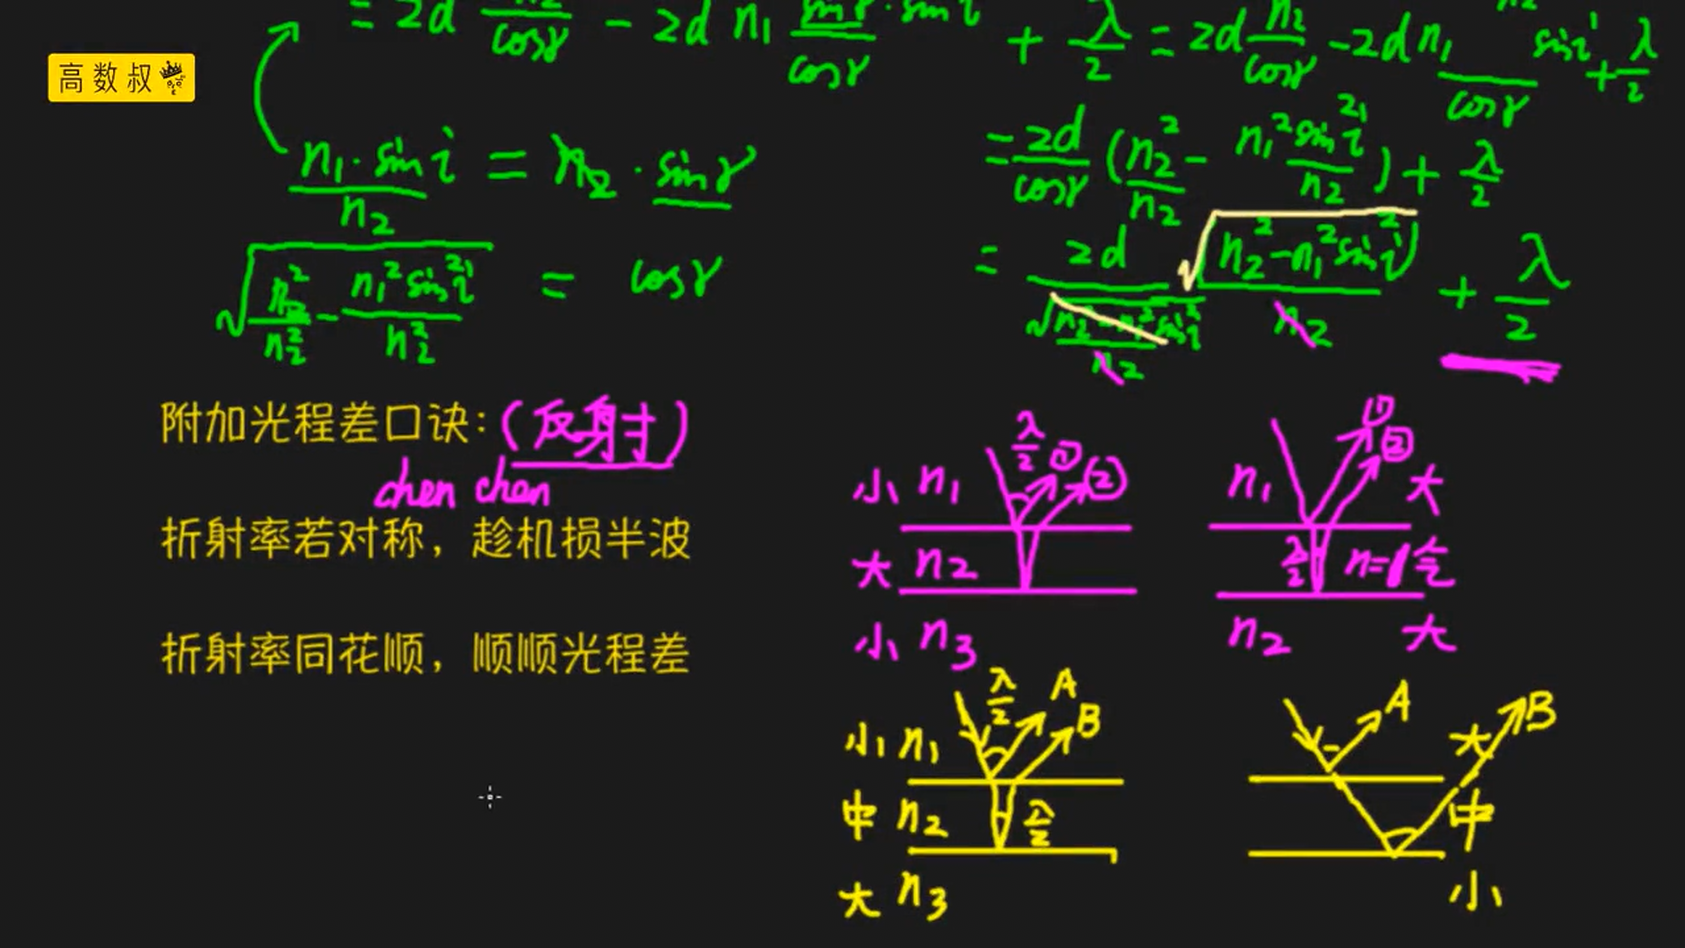 = 2d n2/cosγ - 2d n1 sinγ·sini/cosγ + λ/2 = 2d n2/cosγ - 2dn1 sini/cosγ + λ/2
高数叔
n1·sini/n2 = n2·sinγ
= 2d/cosγ (n2²/n2 - n1²sin²i/n2) + λ/2
√(n2²/n2² - n1²sin²i/n2²) = cosγ
= 2d/(√(n2²-n1²sin²i)/n2) √(n2²-n1²sin²i)/n2 + λ/2
附加光程差口诀:(反射)
chen chen
折射率若对称，趁机损半波
折射率同花顺，顺顺光程差
λ/2 ① ②
小 n1
大 n2
小 n3
① ②
n1 大
λ/2 n=1气
n2 大
λ/2 A B
小 n1
中 n2 λ/2
大 n3
A B
大
中
小